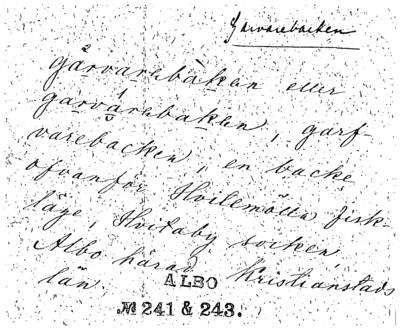 Garvarebacken
gårvarebàkan eller
garvárebaken, garf-
varebacken, en backe
ofvanför Hvitemölla fisk-
läge, Hvitaby socken,
Albo härad Kristianstads
län.
ALBO
№ 241 & 243.